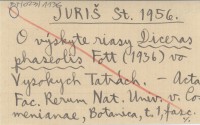 JURIŠ St. 1956.
O výskyte riasy Diceras
phaseolis Fott (1936) vo
Vysokých Tatrách. – Acta
Fac. Rerum Nat. Univ. v. Co-
menianae, Botanica, t. 1, fasc.